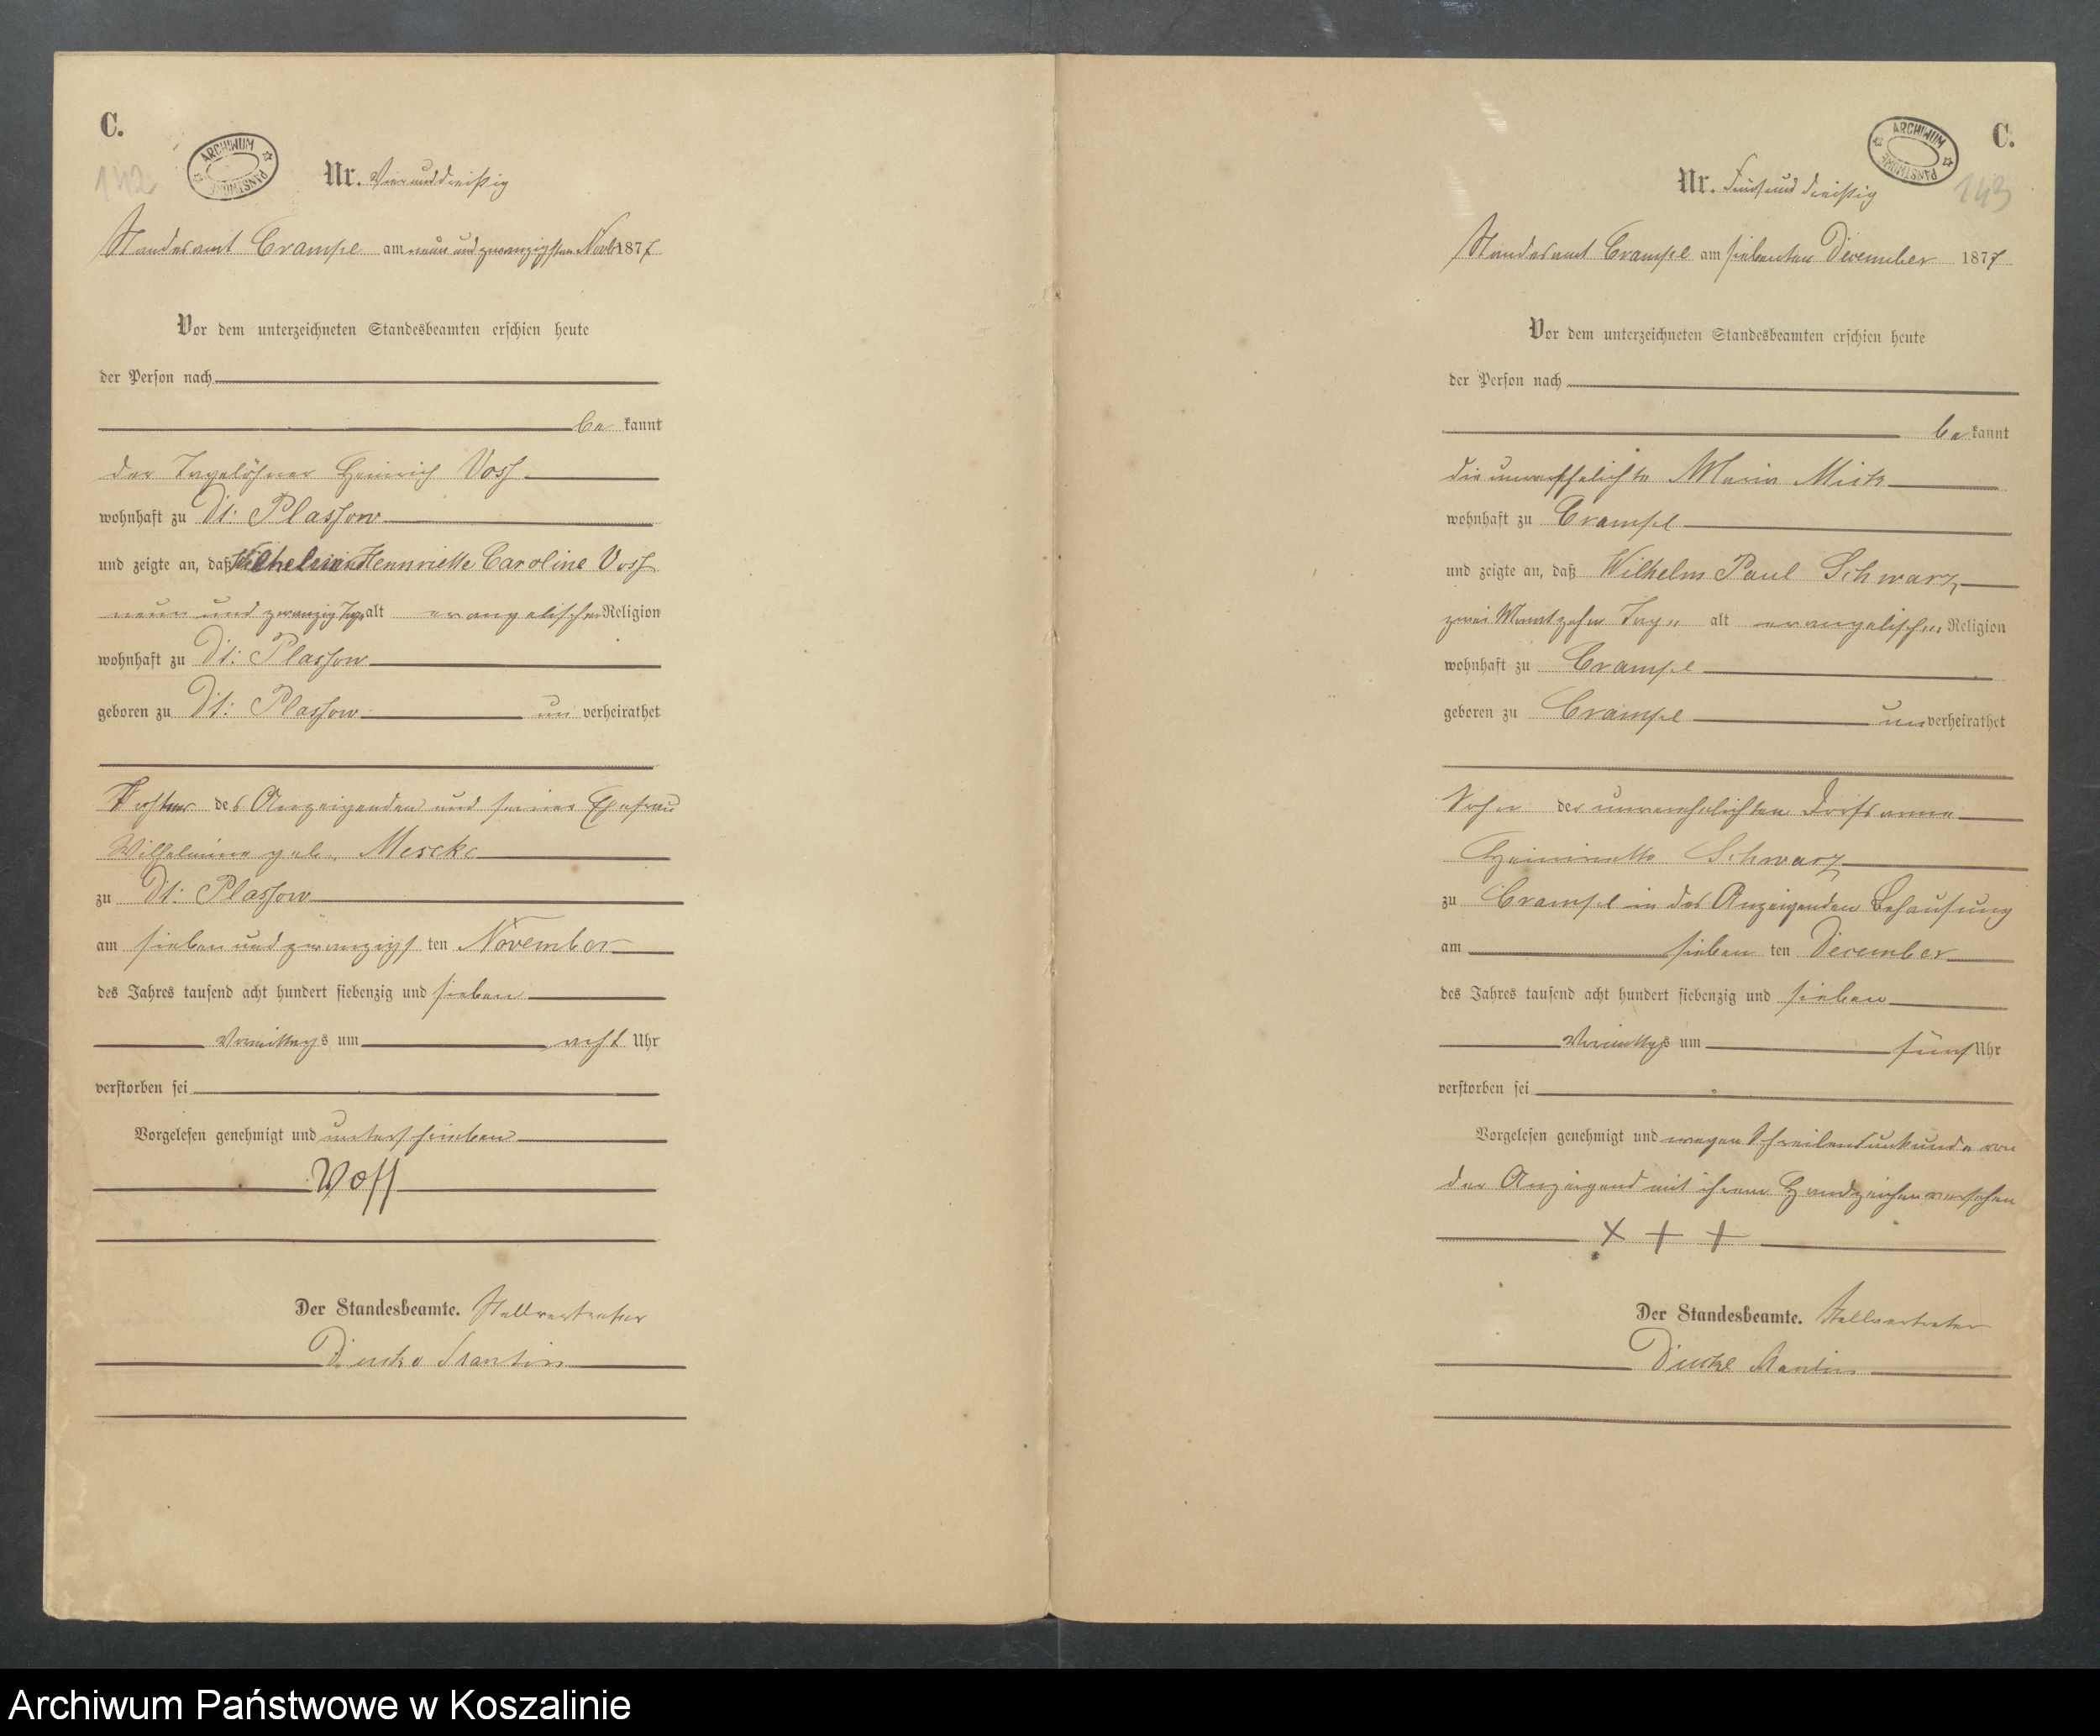 C.
142
ARCHIWUM PAŃSTWOWE
Nr. Vierunddreißig
Standesamt Crampe am neun und zwanzigsten Novbr 1877
Vor dem unterzeichneten Standesbeamten erschien heute
der Person nach
be kannt
der Tagelöhner Heinrich Voss
wohnhaft zu Dt: Plassow
und zeigte an, daß Henriette Caroline Voss
neun und zwanzig Tage alt evangelischer Religion
wohnhaft zu Dt: Plassow
geboren zu Dt: Plassow un verheirathet
Tochter des Anzeigenden und seiner Ehefrau
Wilhelmine geb. Mescke
zu Dt: Plassow
am sieben und zwanzigs ten November
des Jahres tausend acht hundert siebenzig und sieben
Vormittags um acht Uhr
verstorben sei
Vorgelesen genehmigt und unterschrieben
Voss
Der Standesbeamte. Stellvertreter
C.
143
ARCHIWUM PAŃSTWOWE
Nr. Fünf und dreißig
Standesamt Crampe am siebenten December 1877
Vor dem unterzeichneten Standesbeamten erschien heute
der Person nach
be kannt
die unverehelichte Marie
wohnhaft zu Crampe
und zeigte an, daß Wilhelm Paul Schwarz
zwei Monat zehn Tage alt evangelischer Religion
wohnhaft zu Crampe
geboren zu Crampe un verheirathet
Sohn der unverehelichten
Schwarz
zu Crampe in der Anzeigenden Behausung
am sieben ten December
des Jahres tausend acht hundert siebenzig und sieben
Vormittags um fünf Uhr
verstorben sei
Vorgelesen genehmigt und wegen Schreibensunkunde von
der Anzeigend mit ihrem Handzeichen versehen
X + +
Der Standesbeamte. Stellvertreter
Archiwum Państwowe w Koszalinie